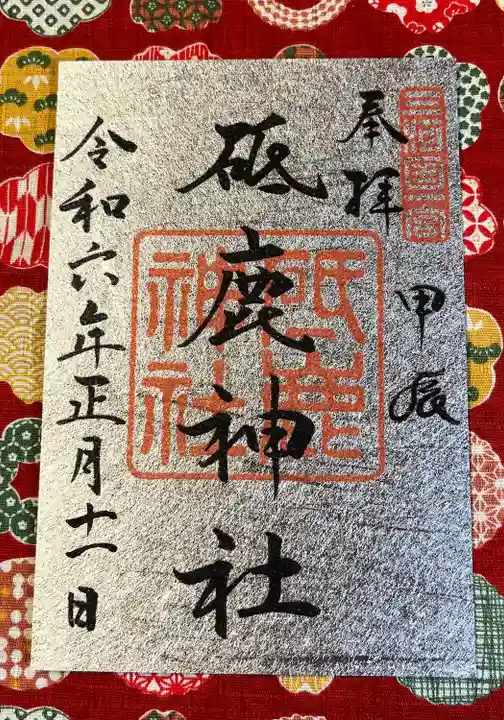 三河國一宮
奉拝
甲辰
砥鹿神社
砥鹿神社
令和六年正月十一日